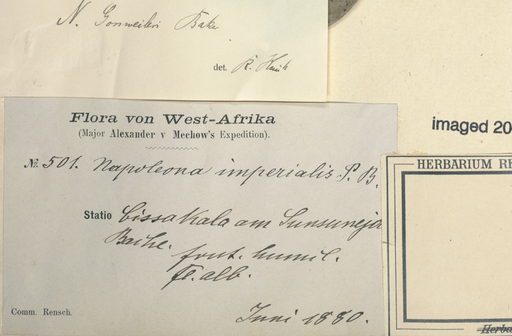 N. Gonweileri Bake
det. R. Knuth
imaged 20
Flora von West-Afrika
(Major Alexander v Mechow's Expedition).
№ 501. Napoleona imperialis P. B.
HERBARIUM RE
Statio Bissakala am
Bache. frut. humil.
Fl. alb.
Juni 1880.
Comm. Rensch.
Herba